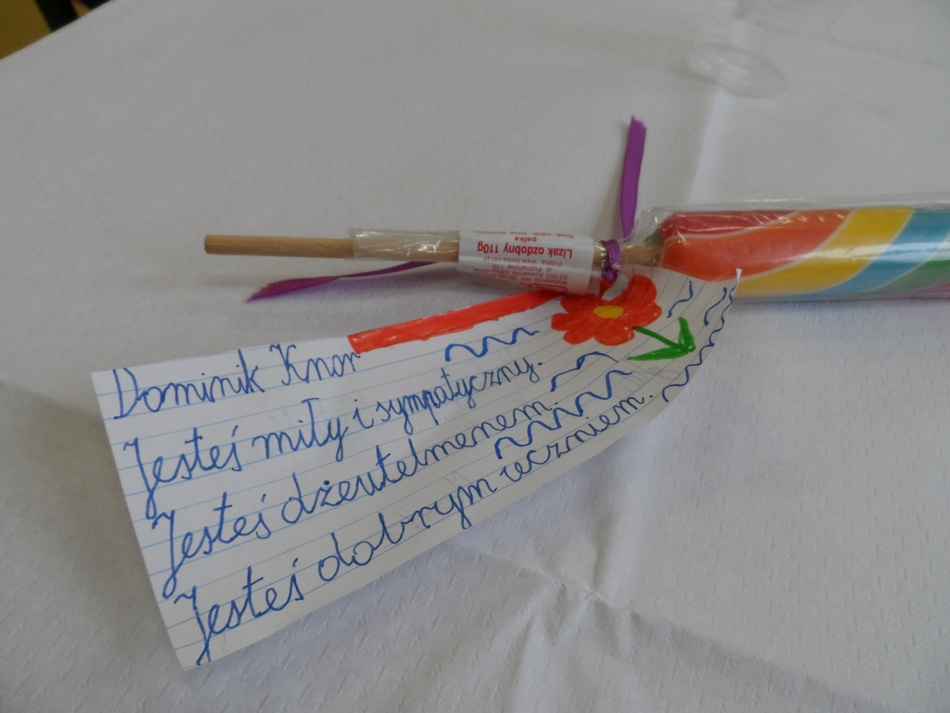 Dominik Knor
Jesteś miły i sympatyczny.
Jesteś dżeutelmenem.
Jesteś dobrym uczniem.
Lizak ozdobny 110g
pałka